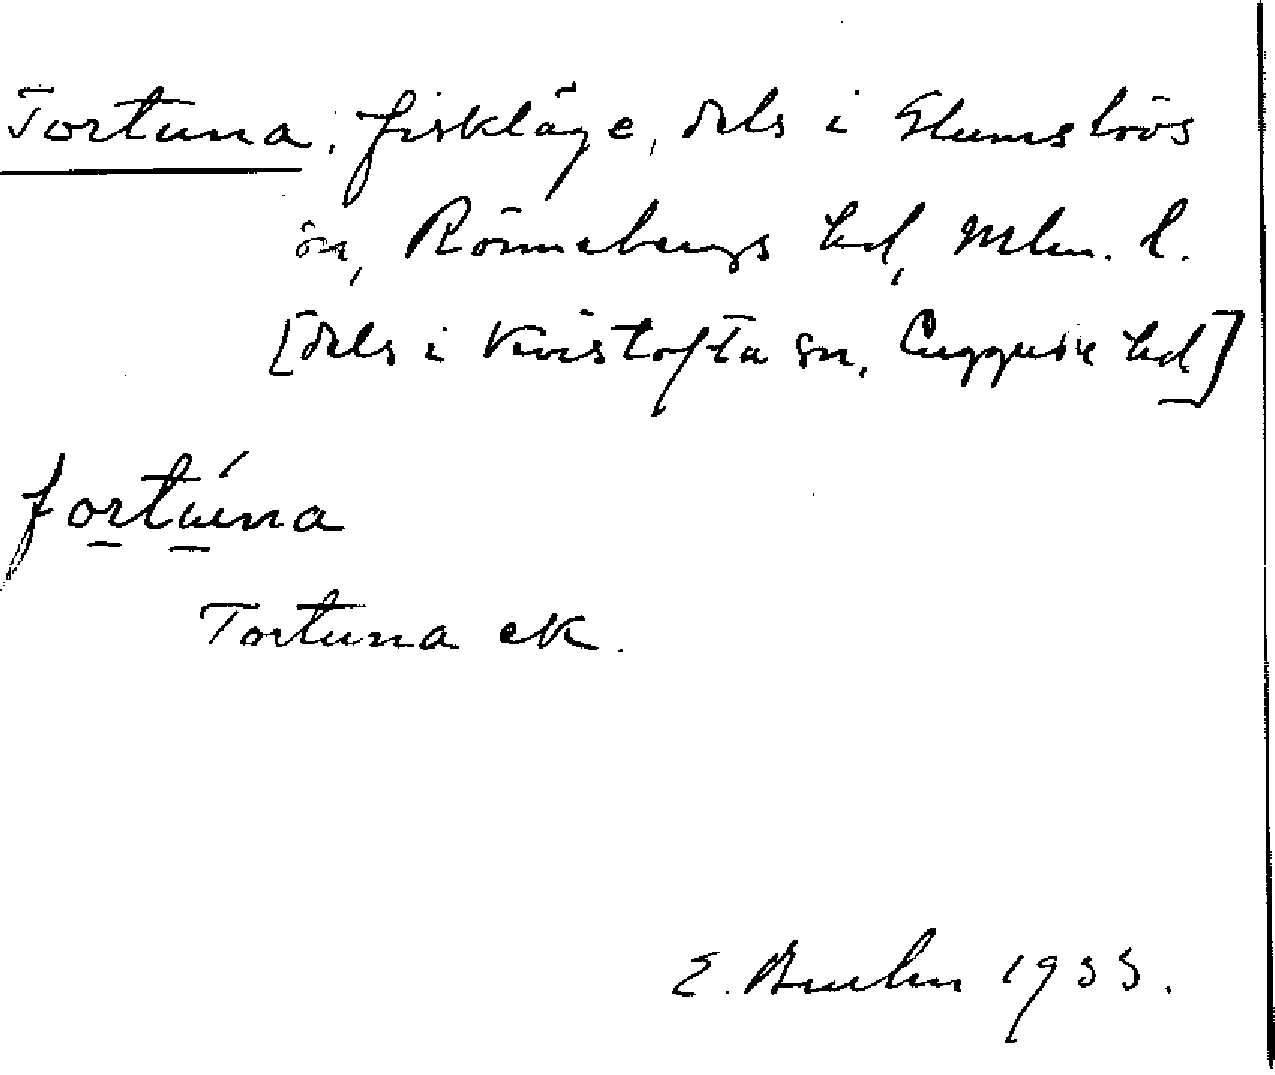 Tortuna, fiskläge, dels i Glumslövs
sn, Rönnebergs hd, Mlm. l.
[dels i Kvistofta sn, Luggude hd]
fortúna
Tortuna ek.
E. Bruhn 1933.